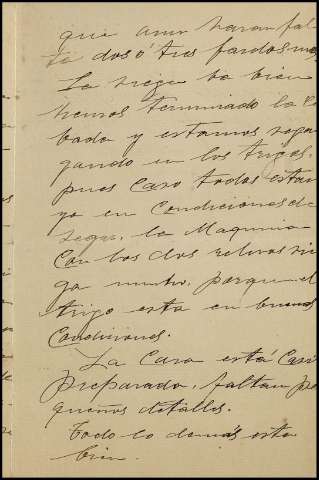 que aun haran fal-
ta dos ó tres fardos mas,
La siega va bien
hemos terminado la Ce
bada y estamos sega
gando en los trigos,
pues Casi todos estan
ya en Condiciones de
segar. la Maquina
Con los dos relevos sie
ga mucho, porque el
trigo esta en buenas
Condiciones.
La Casa está Casi
preparada, faltan pe
queños detalles.
Todo lo demás esta
bien.